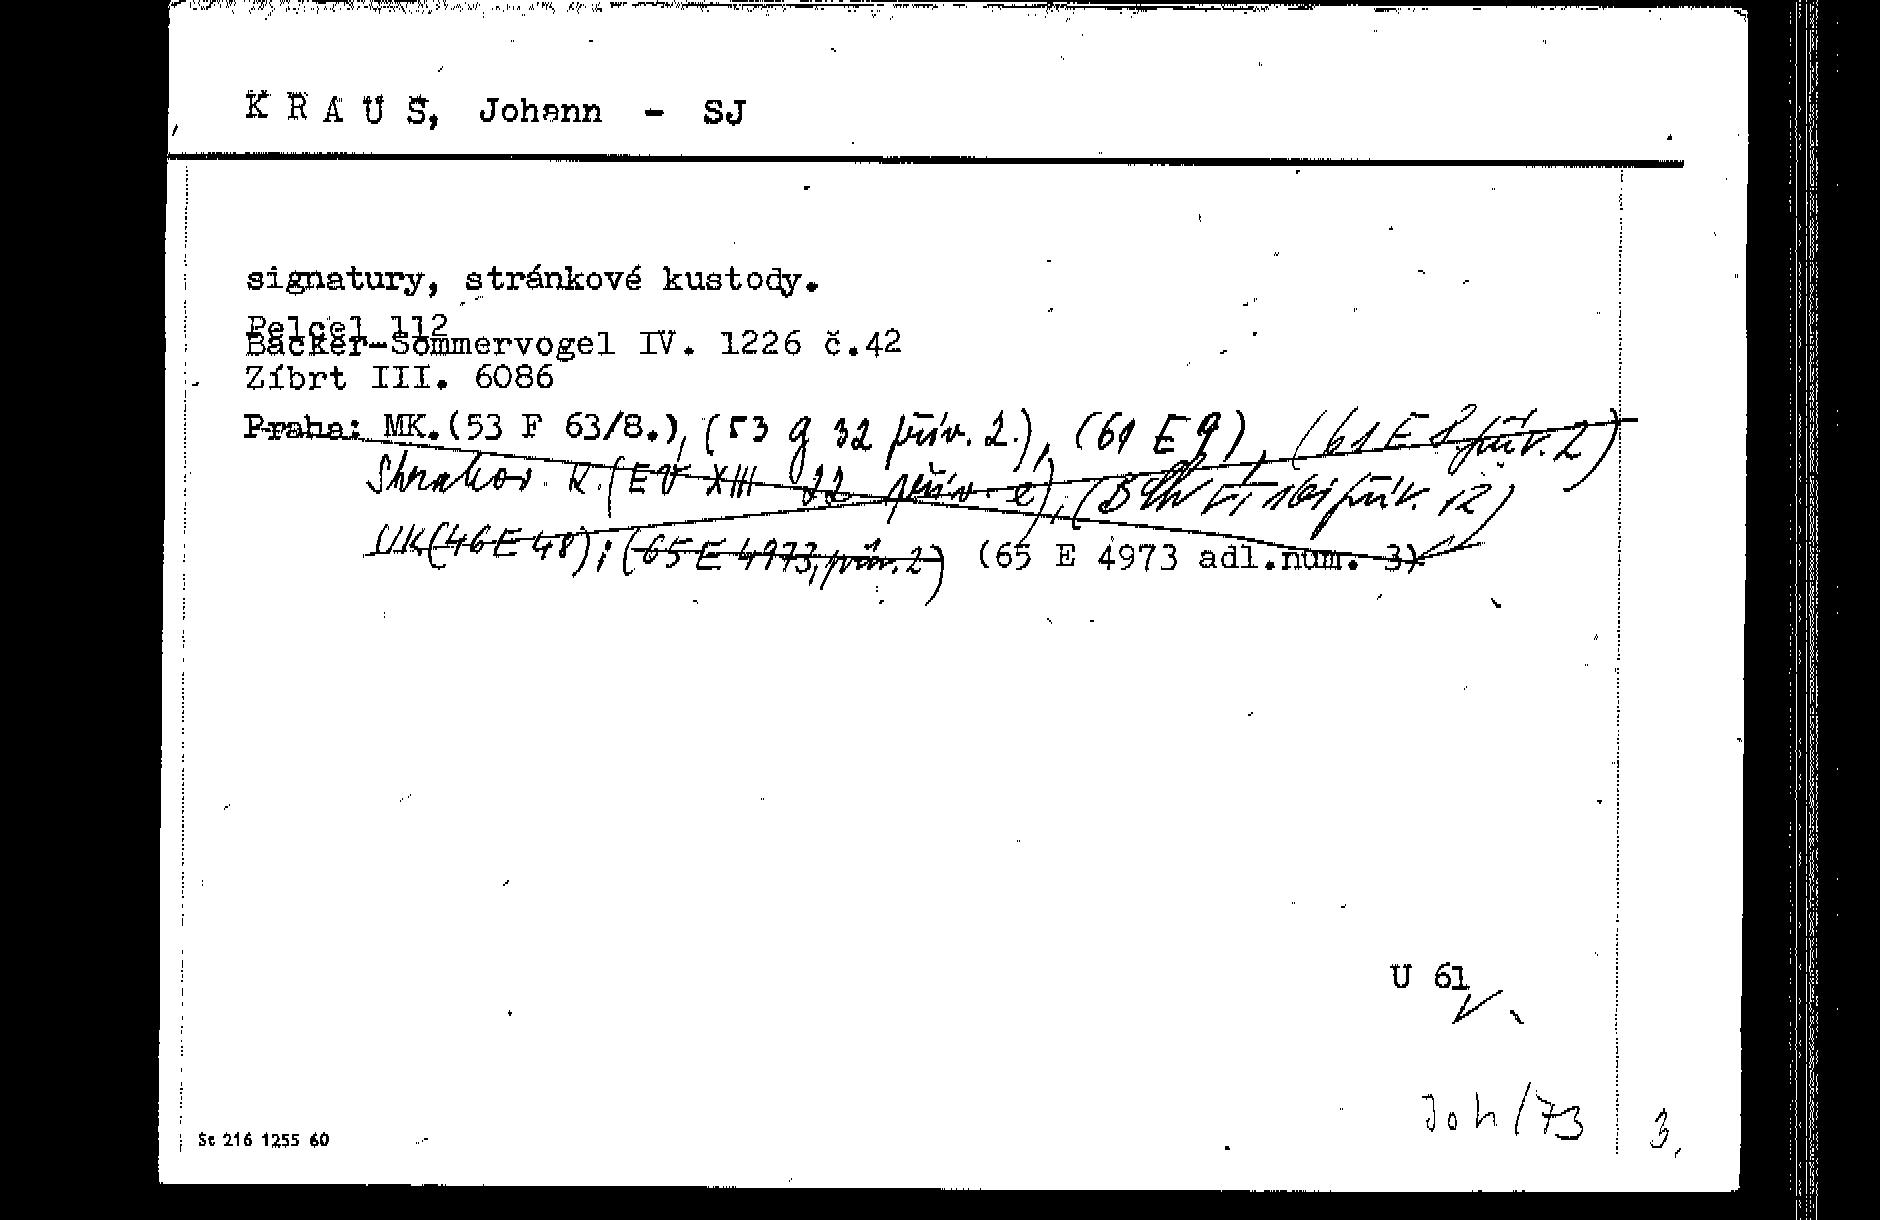 K R A U S, Johann - SJ
signatury, stránkové kustody.
Pelcel 112
Bäcker-Sommervogel IV. 1226 č.42
Zíbrt III. 6086
Praha: MK.(53 F 63/8.), (53 g 32 přív. 2.), (61 E 9), (61 E 8 přív. 2)
Strahov. K. (EV XIII 22 přív. 2), 161 přív. 12)
UK(46 E 48); (65 E 4973, přív. 2) (65 E 4973 adl.num. 3)
U 61
Joh/73 3.
St 216 1255 60